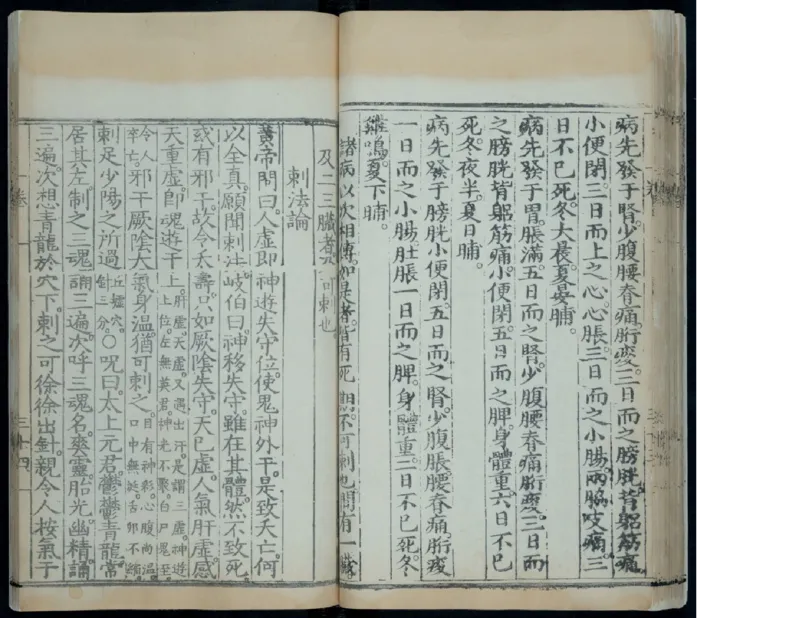 病先發于腎少腹腰脊痛䯒痠三日而之膀胱背䐔筋痛
小便閉三日而上之心心脹三日而之小腸兩脇支痛三
日不已死冬大晨夏晏晡
病先發于胃脹滿五日而之腎少腹腰脊痛䯒痠三日而
之膀胱背䐔筋痛小便閉五日而之脾身體重六日不已
死冬夜半夏日晡
病先發于膀胱小便閉五日而之腎少腹脹腰脊痛䯒痠
一日而之小腸肚脹一日而之脾身體重二日不已死冬
雞鳴夏下晡
諸病以次相傳如是者皆有死期不可刺也間有一臟
及二三臟者可刺也
刺法論
黃帝問曰人虛即神遊失守位使鬼神外干是致夭亡何
以全真願聞刺法岐伯曰神移失守雖在其體然不致死
或有邪干故令夭壽只如厥陰失守天已虛人氣肝虛感
天重虛即魂遊于上肝虛天虛又遇出汗是謂三虛神遊
上位左無英君神光不聚白尸鬼至
令人卒亡邪干厥陰大氣身溫猶可刺之目有神彩心腹尚溫
口中無涎舌卵不縮
刺足少陽之所過丘墟穴針三分〇咒曰太上元君鬱鬱青龍常
居其左制之三魂誦三遍次呼三魂名爽靈胎光幽精誦
三遍次想青龍於穴下刺之可徐徐出針親令人按氣于
卷
三十四